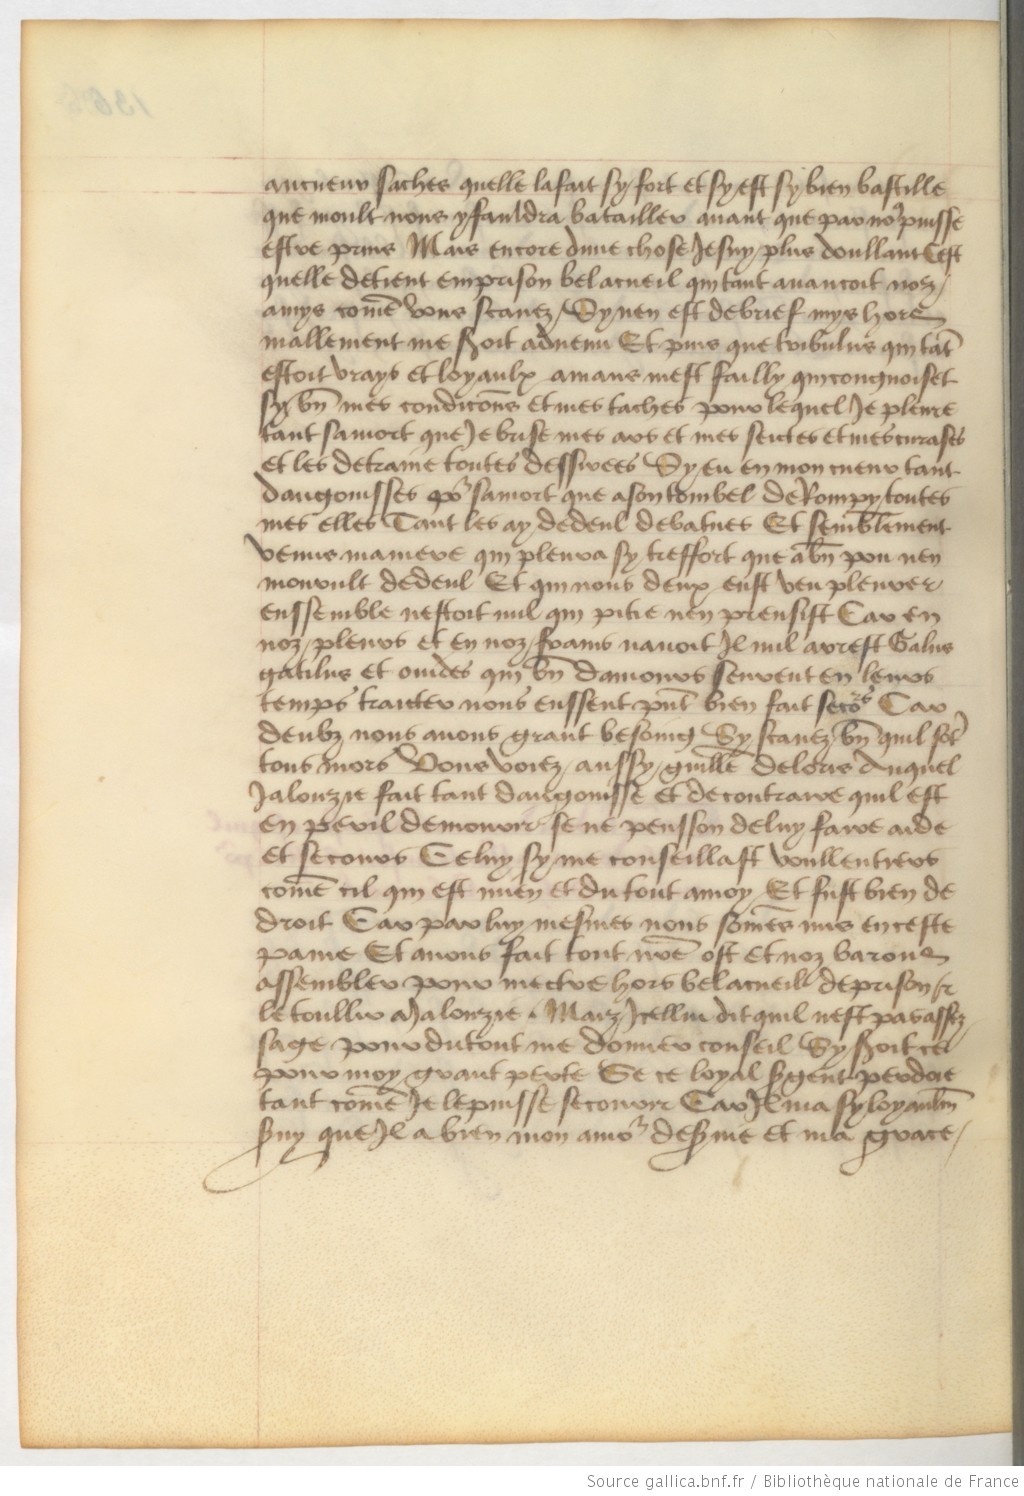 aucueur saches quelle la fait sy fort et sy est sy bien bastille
que moult nous y fauldra batailler auant que par no9 puisse
estre prins Mais encore dune chose Je suy plus doullant Cest
quelle detient emprison belacueil qui tant auancoit noz
amys com̄e vous scauez / Sy nen est de brief mys hors
mallement me seroit aduenu Et puis que tribulus qui tāt
estoit vrays et loyaulx amans mest failly qui congnoisset
sy bn̄ mes condicōns et mes taches pour lequel Je pleure
tant sa mort que Je brise mes ars et mes seictes et mes curases
et les detraine toutes dessirees Sy eu en mon cueur tant
dangouisses po᷑ sa mort que a son tombel deRompy toutes
mes elles Tant les ay dedeul debatues Et semblement
venus ma mere qui pleura sy tresfort que a bn̄ pou nen
mourult dedeul Et qui nous deux eust veu pleurer
enssemble nestoit nul qui pitie nen prensist Car en
noz pleurs et en noz frains nauoit Il nul arrest Galus
gatilus et ouides qui bn̄ damours seurent en leurs
temps traicter nous eussent pnt̄ bien fait seco᷑s Car
deubz nous auons grant besoing Sy scauez bn̄ quil sōt
tous mors Vous voiez aussy guillē deloris Auquel
Jalouzie fait tant dangouisse et de contraire quil est
en peril demourir se ne pensson deluy faire aide
et secours Celuy sy me conseillast voullentiers
com̄e cil qui est mien et du tout a moy Et fust bien de
droit Car par luy mesmes nous som̄es mis en ceste
paine Et auons fait tout nr̄e ost et noz barons
assembler pour mectre hors belacueil de prison &
le toullir a Jalouzie . Maiz Jcellui dit quil nest pas assez
sage pour du tout me donner conseil Sy seroit ce
pour moy grant perte Se ce loyal sgent perdoie
tant com̄e Je le puisse secourir Car Il ma sy loyaulm̄
suy que Il a bien mon amo᷑ desuie et ma grace /
Source gallica.bnf.fr / Bibliothèque nationale de France